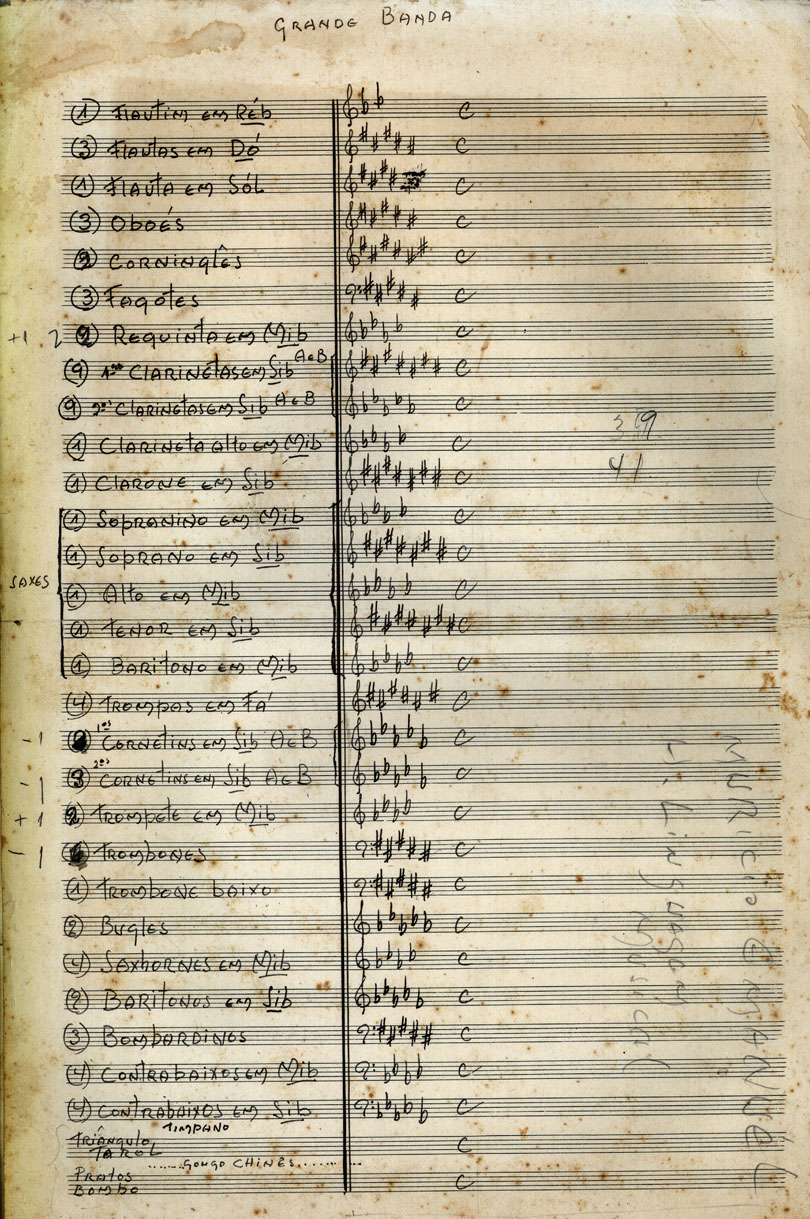 GRANDE BANDA
(1) Flautim em Réb
(3) Flautas em Dó
(1) Flauta em Sól
(3) Oboés
(2) Corninglês
(3) Fagotes
+1 2 (2) Requinta em Mib
(9) 1ºs Clarinetas em Sib A e B
(9) 2ºs Clarinetas em Sib A e B
39
(1) Clarineta Alto em Mib
41
(1) Clarone em Sib
(1) Sopranino em Mib
(1) Soprano em Sib
SAXES
(1) Alto em Mib
(1) Tenor em Sib
(1) Baritono em Mib
(4) Trompas em Fá
-1 1ºs Cornetins em Sib A e B
-1 (3) 2ºs Cornetins em Sib A e B
+1 (2) Trompete em Mib
-1 Trombones
(1) Trombone baixo
(2) Bugles
(4) Saxhornes em Mib
(2) Baritonos em Sib
(3) Bombardinos
(4) Contrabaixos em Mib
(4) Contrabaixos em Sib
TIMPANO
Triângulo
TAROL
......Gongo CHINÊS..........
PRATOS
BOMBO
Linguagem
Musical